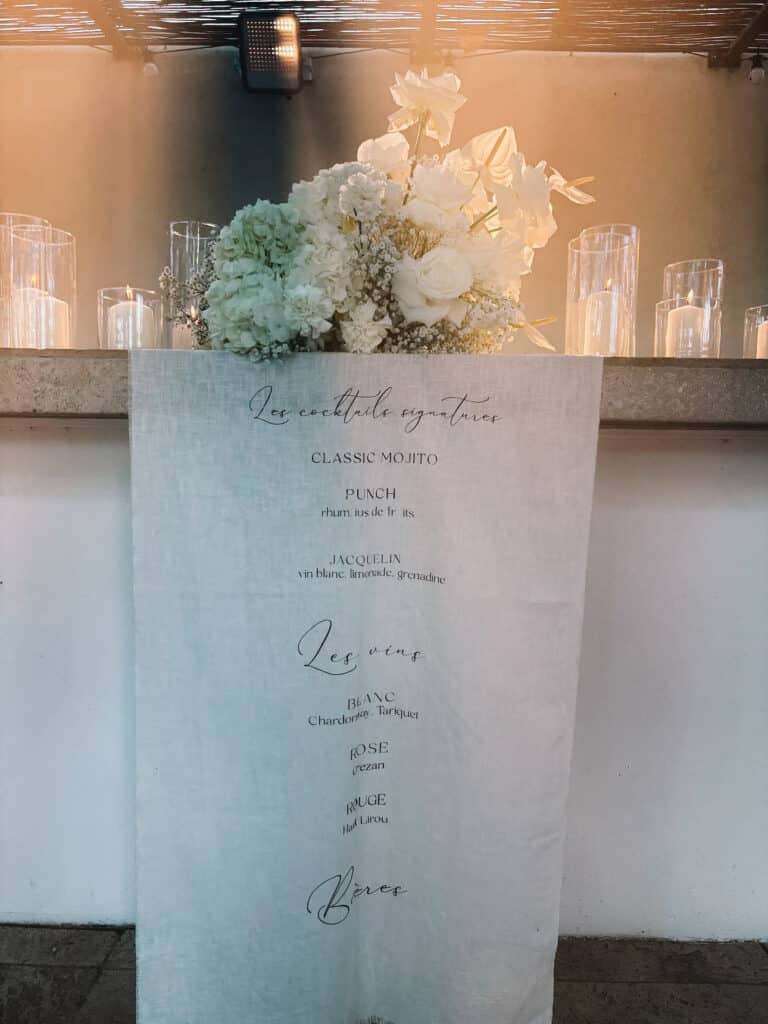 Les cocktails signatures
CLASSIC MOJITO
PUNCH
rhum, jus de fruits
JACQUELIN
vin blanc, limonade, grenadine
Les vins
BLANC
Chardonnay, Tariquet
ROSE
ROUGE
Haut Lirou
Bières